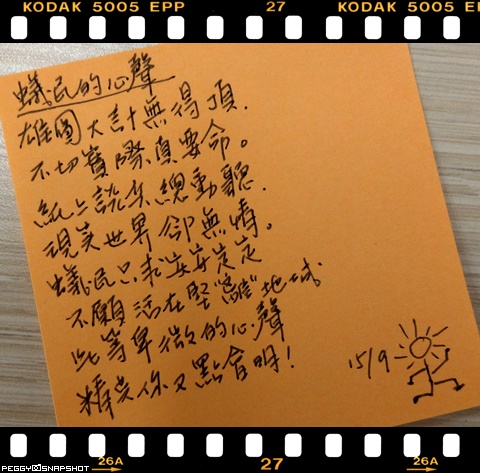 KODAK 5005 EPP 27 KODAK 5005 EPP
蟻民的心聲
雄圖大計無得頂.
不切實際真要命。
紙上談兵總動聽.
現實世界卻無情。
蟻民只求安安定定
不願活在堅"離"地城
此等卑微的心聲
精英你又點會明!
15/9
PEGGY SNAPSHOT
26A 27 26A